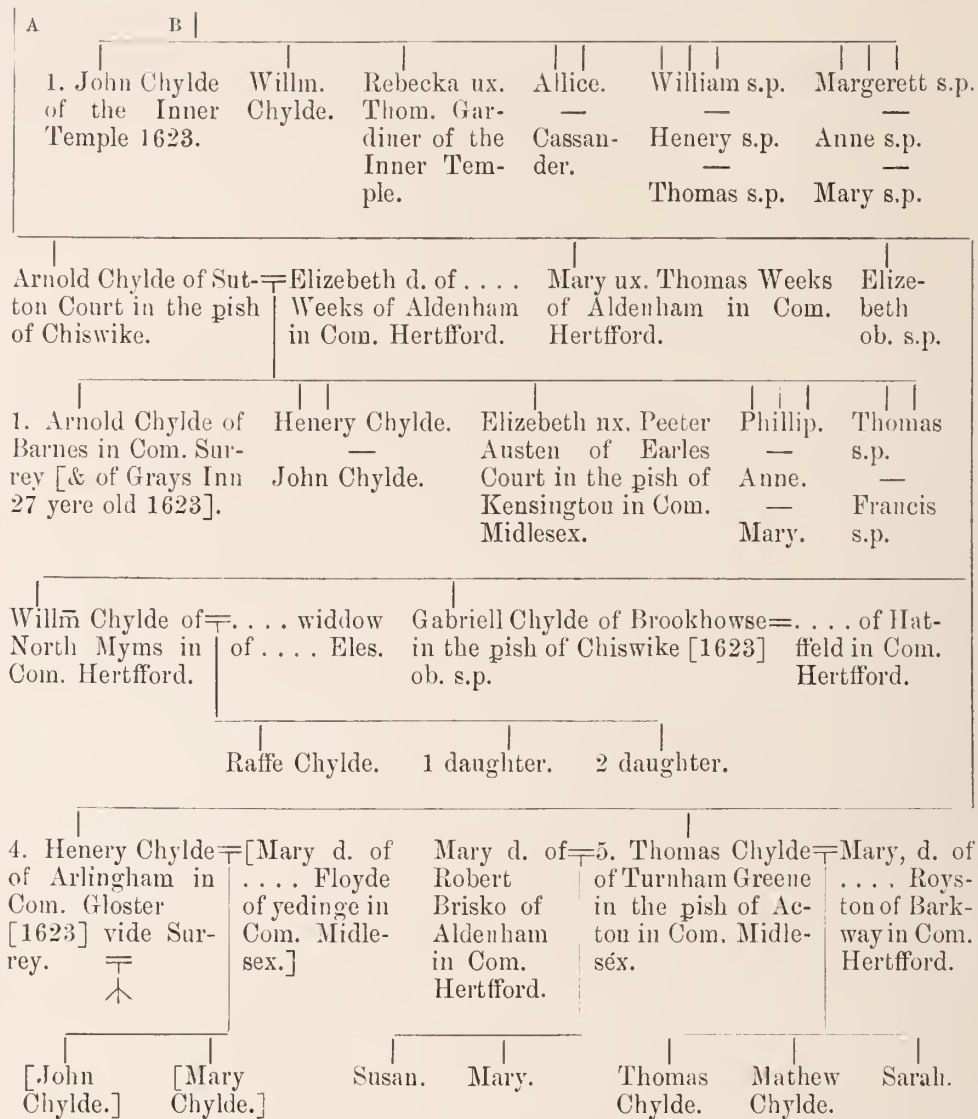 A B
1. John Chylde
of the Inner
Temple 1623.
Willm.
Chylde.
Rebecka ux.
Thom. Gar-
diner of the
Inner Tem-
ple.
Allice.
—
Cassan-
der.
William s.p.
—
Henery s.p.
—
Thomas s.p.
Margerett s.p.
—
Anne s.p.
—
Mary s.p.
Arnold Chylde of Sut-
ton Court in the pish
of Chiswike.
=Elizebeth d. of . . . .
Weeks of Aldenham
in Com. Hertfford.
Mary ux. Thomas Weeks
of Aldenham in Com.
Hertfford.
Elize-
beth
ob. s.p.
1. Arnold Chylde of
Barnes in Com. Sur-
rey [& of Grays Inn
27 yere old 1623].
Henery Chylde.
—
John Chylde.
Elizebeth ux. Peeter
Austen of Earles
Court in the pish of
Kensington in Com.
Midlesex.
Phillip.
—
Anne.
—
Mary.
Thomas
s.p.
—
Francis
s.p.
Willm̄ Chylde of
North Myms in
Com. Hertfford.
=. . . . widdow
of . . . . Eles.
Gabriell Chylde of Brookhowse
in the pish of Chiswike [1623]
ob. s.p.
=. . . . of Hat-
ffeld in Com.
Hertfford.
Raffe Chylde. 1 daughter. 2 daughter.
4. Henery Chylde
of Arlingham in
Com. Gloster
[1623] vide Sur-
rey.
=[Mary d. of
. . . . Floyde
of yedinge in
Com. Midle-
sex.]
Mary d. of
Robert
Brisko of
Aldenham
in Com.
Hertfford.
=5. Thomas Chylde
of Turnham Greene
in the pish of Ac-
ton in Com. Midle-
séx.
=Mary, d. of
. . . . Roys-
ton of Bark-
way in Com.
Hertfford.
[John
Chylde.]
[Mary
Chylde.]
Susan. Mary.
Thomas
Chylde.
Mathew
Chylde.
Sarah.